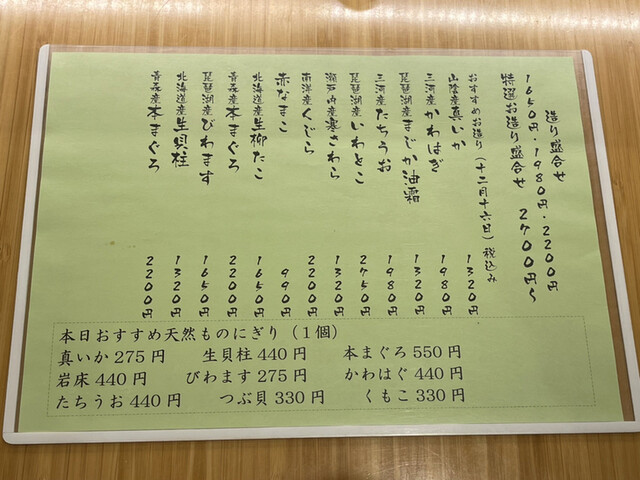 造り盛合せ
1650円・1980円・2200円
特選お造り盛合せ 2700円〜
おすすめお造り(十二月十六日)税込み
山陰産真いか 1320円
三河産かわはぎ 1980円
琵琶湖産まじか油霜 1320円
三河産たちうお 1980円
琵琶湖産いわとこ 2750円
瀬戸内産寒さわら 1320円
南洋産くじら 2200円
赤なまこ 990円
北海道産生柳たこ 1650円
青森産本まぐろ 2200円
琵琶湖産びわます 1650円
北海道産生貝柱 1320円
青森産本まぐろ 2200円
本日おすすめ天然ものにぎり(1個)
真いか275円 生貝柱440円 本まぐろ550円
岩床440円 びわます275円 かわはぐ440円
たちうお440円 つぶ貝330円 くもこ330円